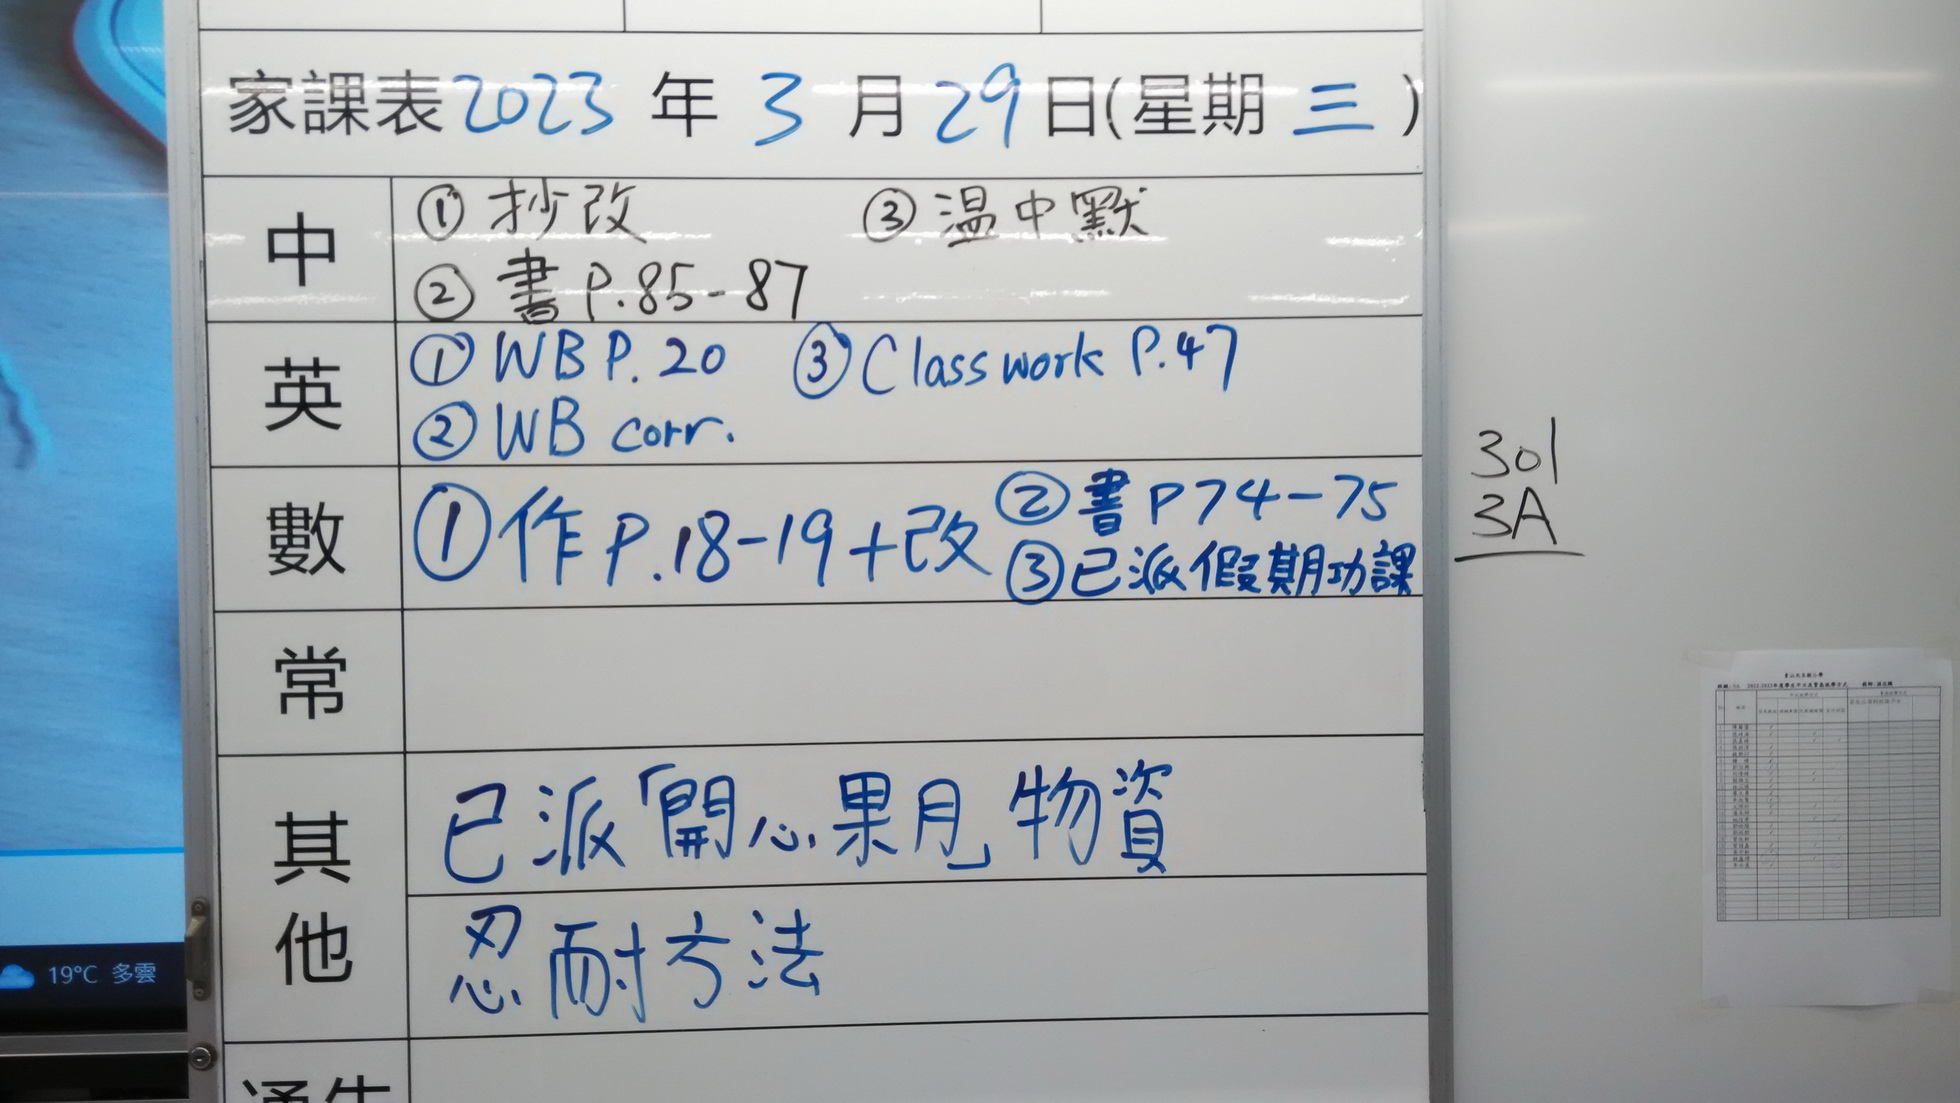 家課表 2023 年 3 月 29 日(星期 三 )
中
① 抄改 ③ 温中默
② 書 P.85-87
英
① WB P.20 ③ Classwork P.47
② WB corr.
數
① 作 P.18-19+改 ② 書 P74-75
③ 已派假期功課
常
其他
已派「開心果月」物資
忍耐方法
通告
301
3A
19°C 多雲